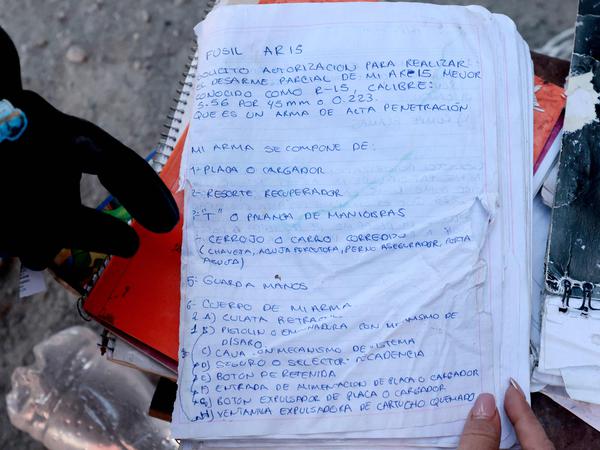 FUSIL AR15
SOLICITO AUTORIZACION PARA REALIZAR
EL DESARME PARCIAL DE MI AR15 MEJOR
CONOCIDO COMO R-15, CALIBRE:
5.56 POR 45 MM O 0.223.
QUE ES UN ARMA DE ALTA PENETRACIÓN
MI ARMA SE COMPONE DE:
1- PLACA O CARGADOR
2- RESORTE RECUPERADOR
3- "T" O PALANCA DE MANIOBRAS
4- CERROJO O CARRO CORREDIZO
(CHAVETA, AGUJA PERCUTORA, PERNO ASEGURADOR, PORTA
AGUJA)
5- GUARDA MANOS
6- CUERPO DE MI ARMA
A) CULATA
B) PISTOLIN O CON MECANISMO DE
DISPARO
C) CON MECANISMO DE SISTEMA
D) SEGURO O SELECTOR CADENCIA
E) BOTON DE RETENIDA
F) ENTRADA DE ALIMENTACION DE PLACA O CARGADOR
G) BOTON EXPULSADOR DE PLACA O CARGADOR
H) VENTANILLA EXPULSADORA DE CARTUCHO QUEMADO